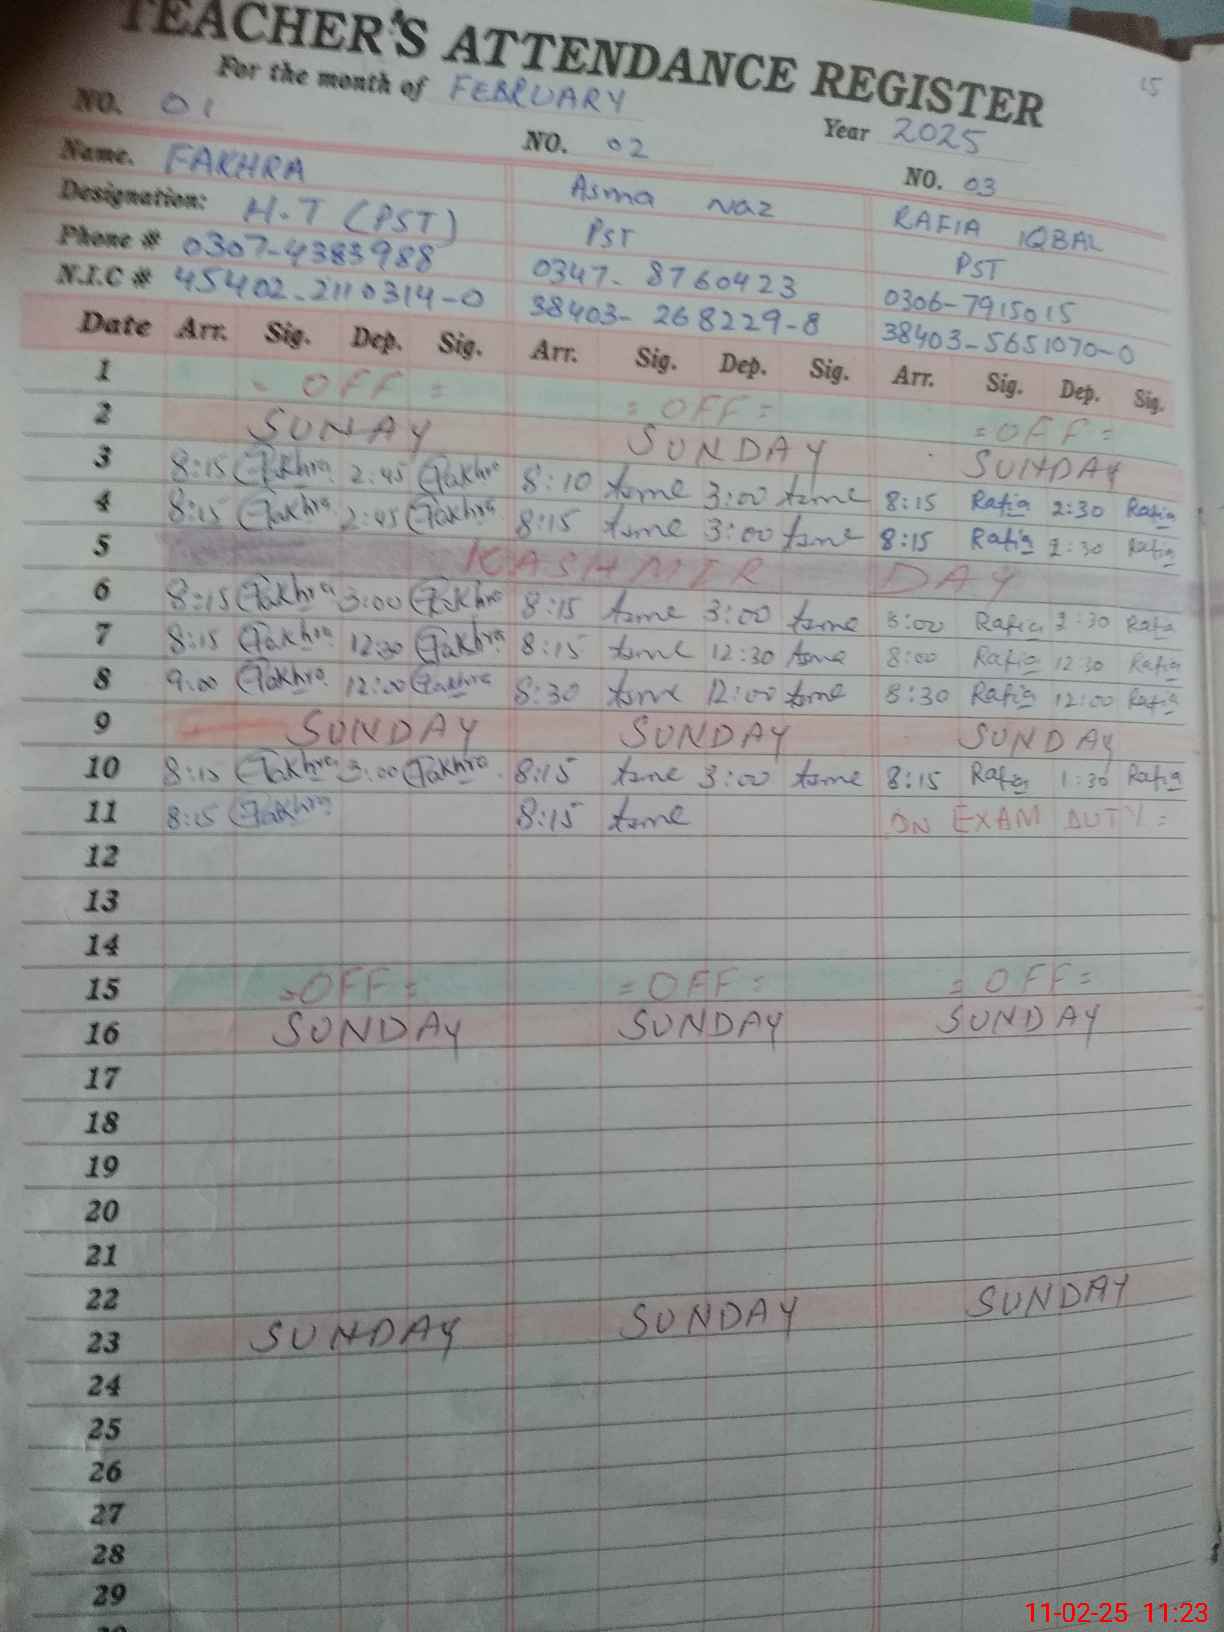 TEACHER'S ATTENDANCE REGISTER
15
For the month of FEBRUARY
Year 2025
NO. 01 NO. 02 NO. 03
Name. FAKHRA Asma Naz RAFIA IQBAL
Designation: H.T (PST) PST PST
Phone # 0307-4383988 0347-8760423 0306-7915015
N.I.C # 45402-2110314-0 38403-268229-8 38403-5651070-0
Date Arr. Sig. Dep. Sig. Arr. Sig. Dep. Sig. Arr. Sig. Dep. Sig.
1 - OFF = = OFF = = OFF =
2 SUNAY SUNDAY SUNDAY
3 8:15 Fakhra 2:45 Fakhra 8:10 Asme 3:00 Asme 8:15 Rafia 2:30 Rafia
4 8:15 Fakhra 2:45 Fakhra 8:15 Asme 3:00 Asme 8:15 Rafia :30 Rafia
5 KASHMIR DAY
6 8:15 Fakhra 3:00 Fakhra 8:15 Asme 3:00 Asme 8:00 Rafia :30 Rafia
7 8:15 Fakhra 12:30 Fakhra 8:15 Asme 12:30 Asme 8:00 Rafia 12:30 Rafia
8 9:00 Fakhra 12:00 Fakhra 8:30 Asme 12:00 Asme 8:30 Rafia 12:00 Rafia
9 SUNDAY SUNDAY SUNDAY
10 8:15 Fakhra 3:00 Fakhra 8:15 Asme 3:00 Asme 8:15 Rafia 1:30 Rafia
11 8:15 Fakhra 8:15 Asme ON EXAM DUTY =
12
13
14
15 = OFF = = OFF = = OFF =
16 SUNDAY SUNDAY SUNDAY
17
18
19
20
21
22
23 SUNDAY SUNDAY SUNDAY
24
25
26
27
28
29
11-02-25 11:23